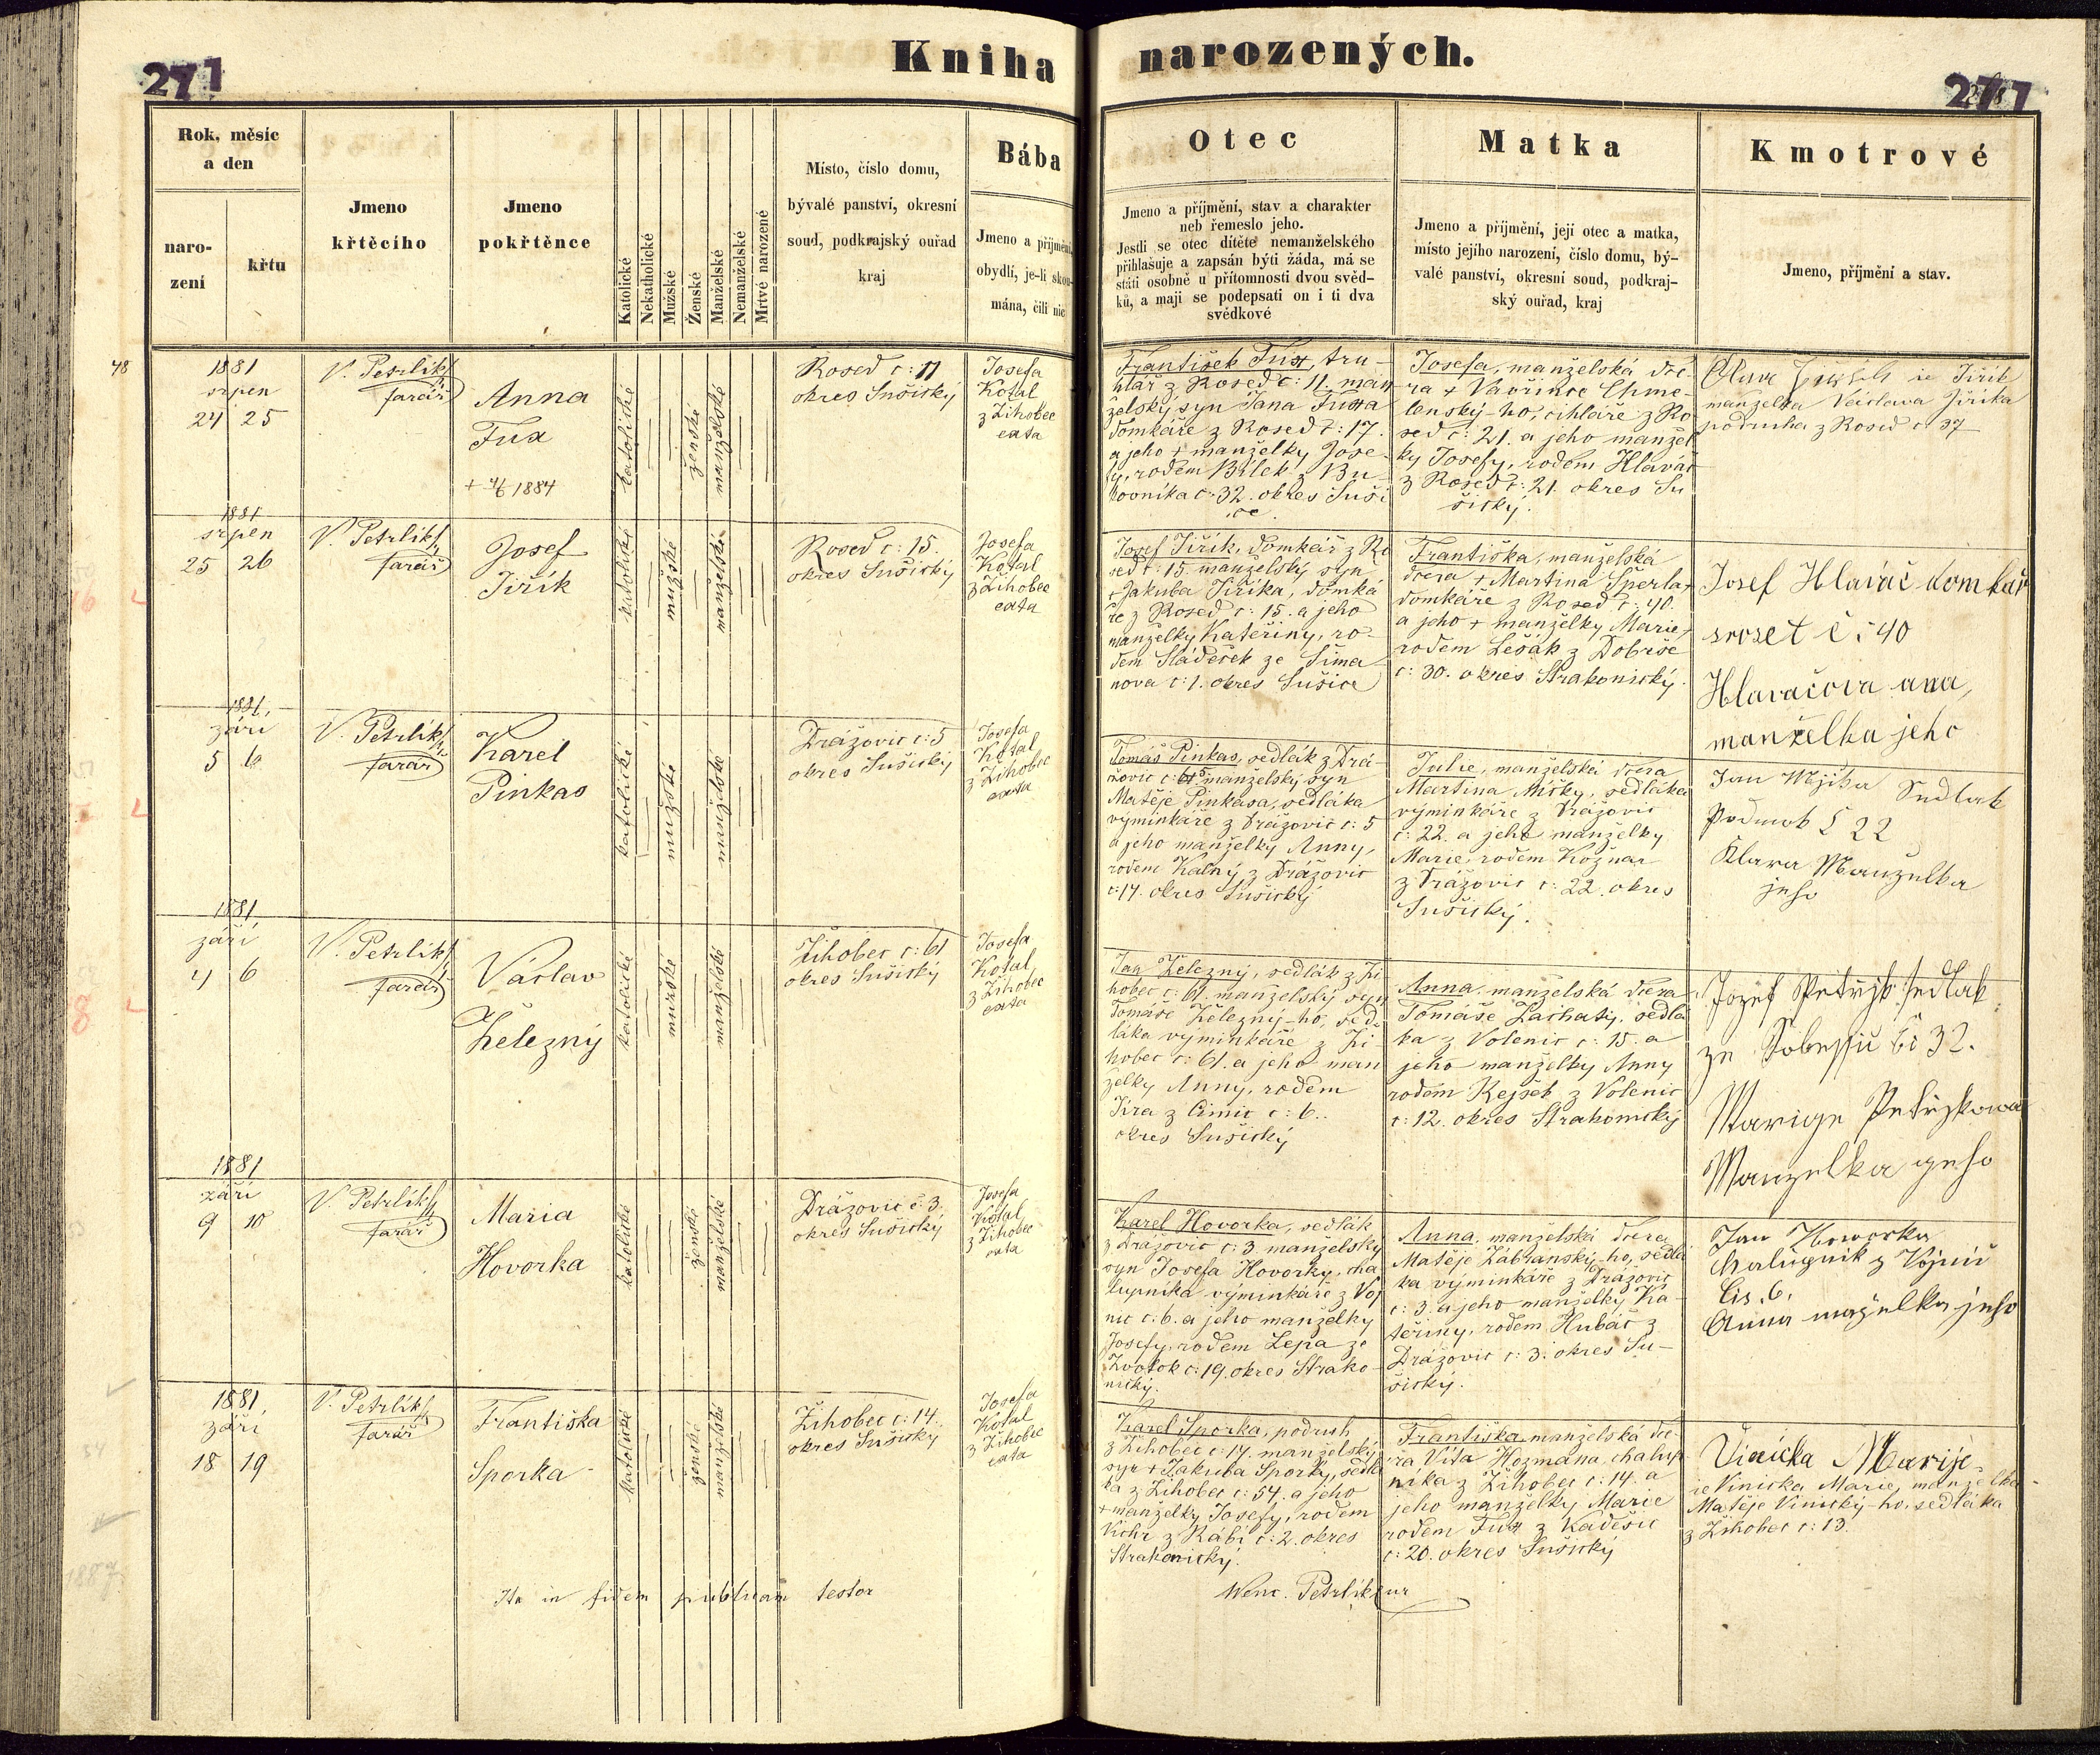 Kniha narozených.
271
277
Rok, měsíc
a den
naro-
zení
křtu
Jmeno
křtěcího
Jmeno
pokřtěnce
Katolické
Nekatholické
Mužské
Ženské
Manželské
Nemanželské
Mrtvé narozené
Místo, číslo domu,
bývalé panství, okresní
soud, podkrajský ouřad
kraj
Bába
Jmeno a příjmení,
obydlí, je-li skou-
mána, čili nic
Otec
Jmeno a příjmení, stav a charakter
neb řemeslo jeho.
Jestli se otec dítěte nemanželského
přihlašuje a zapsán býti žáda, má se
státi osobně u přítomnosti dvou svěd-
ků, a mají se podepsati on i ti dva
svědkové
Matka
Jmeno a příjmení, její otec a matka,
místo jejího narození, číslo domu, bý-
valé panství, okresní soud, podkraj-
ský ouřad, kraj
Kmotrové
Jmeno, příjmení a stav.
48
1881
srpen
24 25
V. Petrlík
farář
Anna
Fux
1884
katolické
ženské
manželské
Rosed č: 11
okres Sušický
Josefa
Kotal
z Žihobec
exta
František Fux, tru-
hlář z Rosed č: 11. man
želský syn Jana Fuxa
domkáře z Rosed č: 17.
a jeho + manželky Jose-
fy, rodem Bílek z Bu-
kovníka č: 32. okres Suši
ce.
Josefa, manželská dce-
ra + Vavřince Chme-
lenský-ho, cihláře z Ro
sed č: 21. a jeho manžel
ky Josefy, rodem Hlaváč
z Rosed č: 21. okres Su
šický.
ie Jiřík
manželka Václava Jiříka
podruha z Rosed č 37
1881
srpen
25 26
V. Petrlík
farář
Josef
Jiřík
katolické
mužské
manželské
Rosed č: 15.
okres Sušický
Josefa
Kotal
z Žihobec
exta
Josef Jiřík, domkář z Ro
sed č: 15 manželský syn
+ Jakuba Jiříka, domká
ře z Rosed č: 15. a jeho
manželky Kateřiny, ro-
dem Sládeček ze Šima
nova č: 1. okres Sušice
Františka, manželská
dcera + Martina Šperla,
domkáře z Rosed č: 40.
a jeho + manželky Marie,
rodem Lešák z Dobrše
č: 30. okres Strakonický.
Josef Hlaváč domkář
sroset č: 40
Hlavačova ana,
manželka jeho
1881.
září
5 6
V. Petrlík
farář
Karel
Pinkas
katolické
mužské
manželské
Drážovic č: 5
okres Sušický
Josefa
Kotal
z Žihobec
exta
Tomáš Pinkas, sedlák z Drá
žovic č: 5 manželský syn
Matěje Pinkasa, sedláka
výminkáře z Drážovic č: 5
a jeho manželky Anny,
rodem Kalný z Drážovic
č: 17. okres Sušický
Julie, manželská dcera
Martina Míčky, sedláka
výminkáře z Drážovic
č: 22. a jeho manželky
Marie, rodem Kožnar
z Drážovic č: 22. okres
Sušický.
Jan Sedlak
č 22
Klara Manzelka
jeho
1881
září
4 6
V. Petrlík
farář
Václav
Železný
katolické
mužské
manželské
Žihobec č: 61
okres Sušický
Josefa
Kotal
z Žihobec
exta
Jan Železný, sedlák z Ži
hobec č: 61. manželský syn
Tomáše Železný-ho, sed-
láka výminkáře z Ži
hobec č: 61. a jeho man
želky Anny, rodem
Jíra z Čimic č: 6.
okres Sušický
Anna, manželská dcera
Tomáše Zachaty, sedlá
ka z Volenic č: 15. a
jeho manželky Anny
rodem Rejšek z Volenic
č: 12. okres Strakonický
Jozef Petržik sedlak
ze Sobessu Čí 32.
Marige Petrzkowa
Manzelka geho
1881
září
9 10
V. Petrlík
farář
Maria
Hovorka
katolické
ženské
manželské
Drážovic č: 3.
okres Sušický
Josefa
Kotal
z Žihobec
exta
Karel Hovorka, sedlák
z Drážovic č: 3. manželský
syn Josefa Hovorky, cha
lupníka výminkáře z Voj
nic č: 6. a jeho manželky
Josefy, rodem Lepa ze
Zvotok č: 19. okres Strako-
nický.
Anna, manželská dcera
Matěje Zábranský-ho, sedlá
ka výminkáře z Drážovic
č: 3. a jeho manželky Ka-
teřiny, rodem Hubáč z
Drážovic č: 3. okres Su-
šický.
Jan Howorka
Chalupnik z Vojnic
Čis. 6.
Anna mazelka jeho
1881.
září
18 19
V. Petrlík
farář
Františka
Sporka
katolické
ženské
manželské
Žihobec č: 14.
okres Sušický
Josefa
Kotal
z Žihobec
exta
Karel Sporka, podruh
z Žihobec č: 14. manželský
syn + Jakuba Sporky, sedlá
ka z Žihobec č: 54. a jeho
+ manželky Josefy, rodem
Vichr z Rábí č: 2. okres
Strakonický.
Františka, manželská dce-
ra Víta Hozmana, chalup
níka z Žihobec č: 14. a
jeho manželky Marie
rodem Fux z Kadešic
č: 20. okres Sušický
Vinicka Marije
ie Vinicka Marie, manželka
Matěje Vinický-ho, sedláka
z Žihobec č: 13.
Ita in fidem publicam testor
Wenc. Petrlík
1887